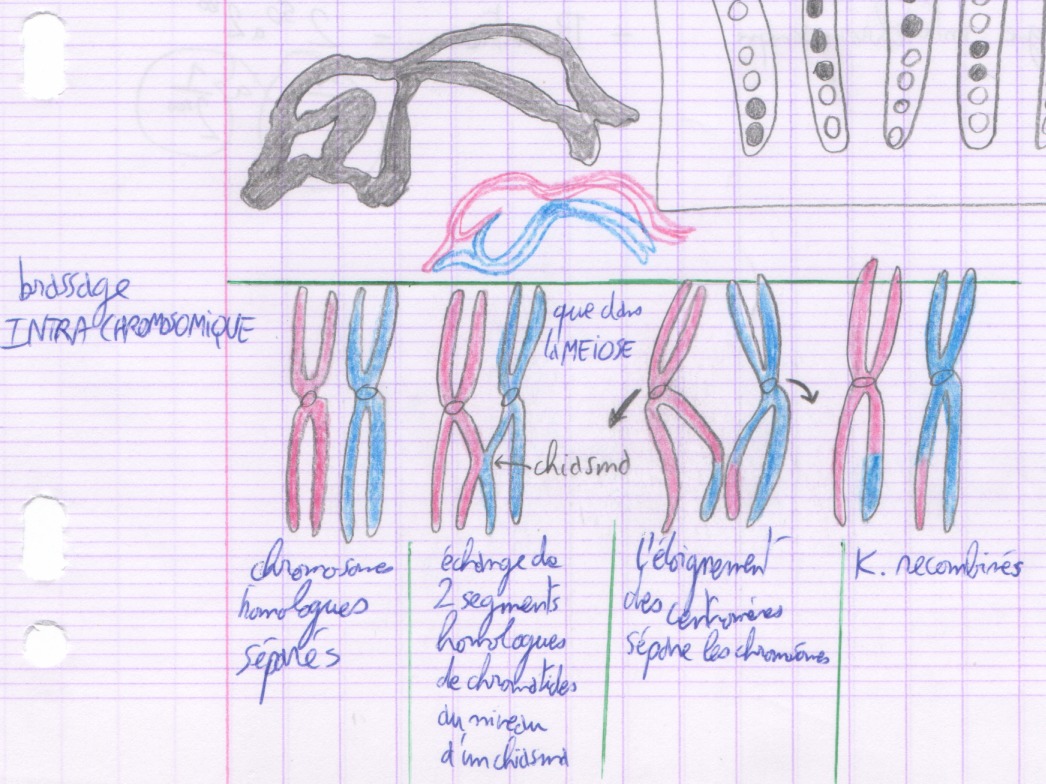 brassage
INTRA CHROMOSOMIQUE
que dans
la MEIOSE
chiasma
chromosomes
homologues
séparés
échange de
2 segments
homologues
de chromatides
au niveau
d'un chiasma
l'éloignement
des centromères
sépare les chromosomes
K. recombinés